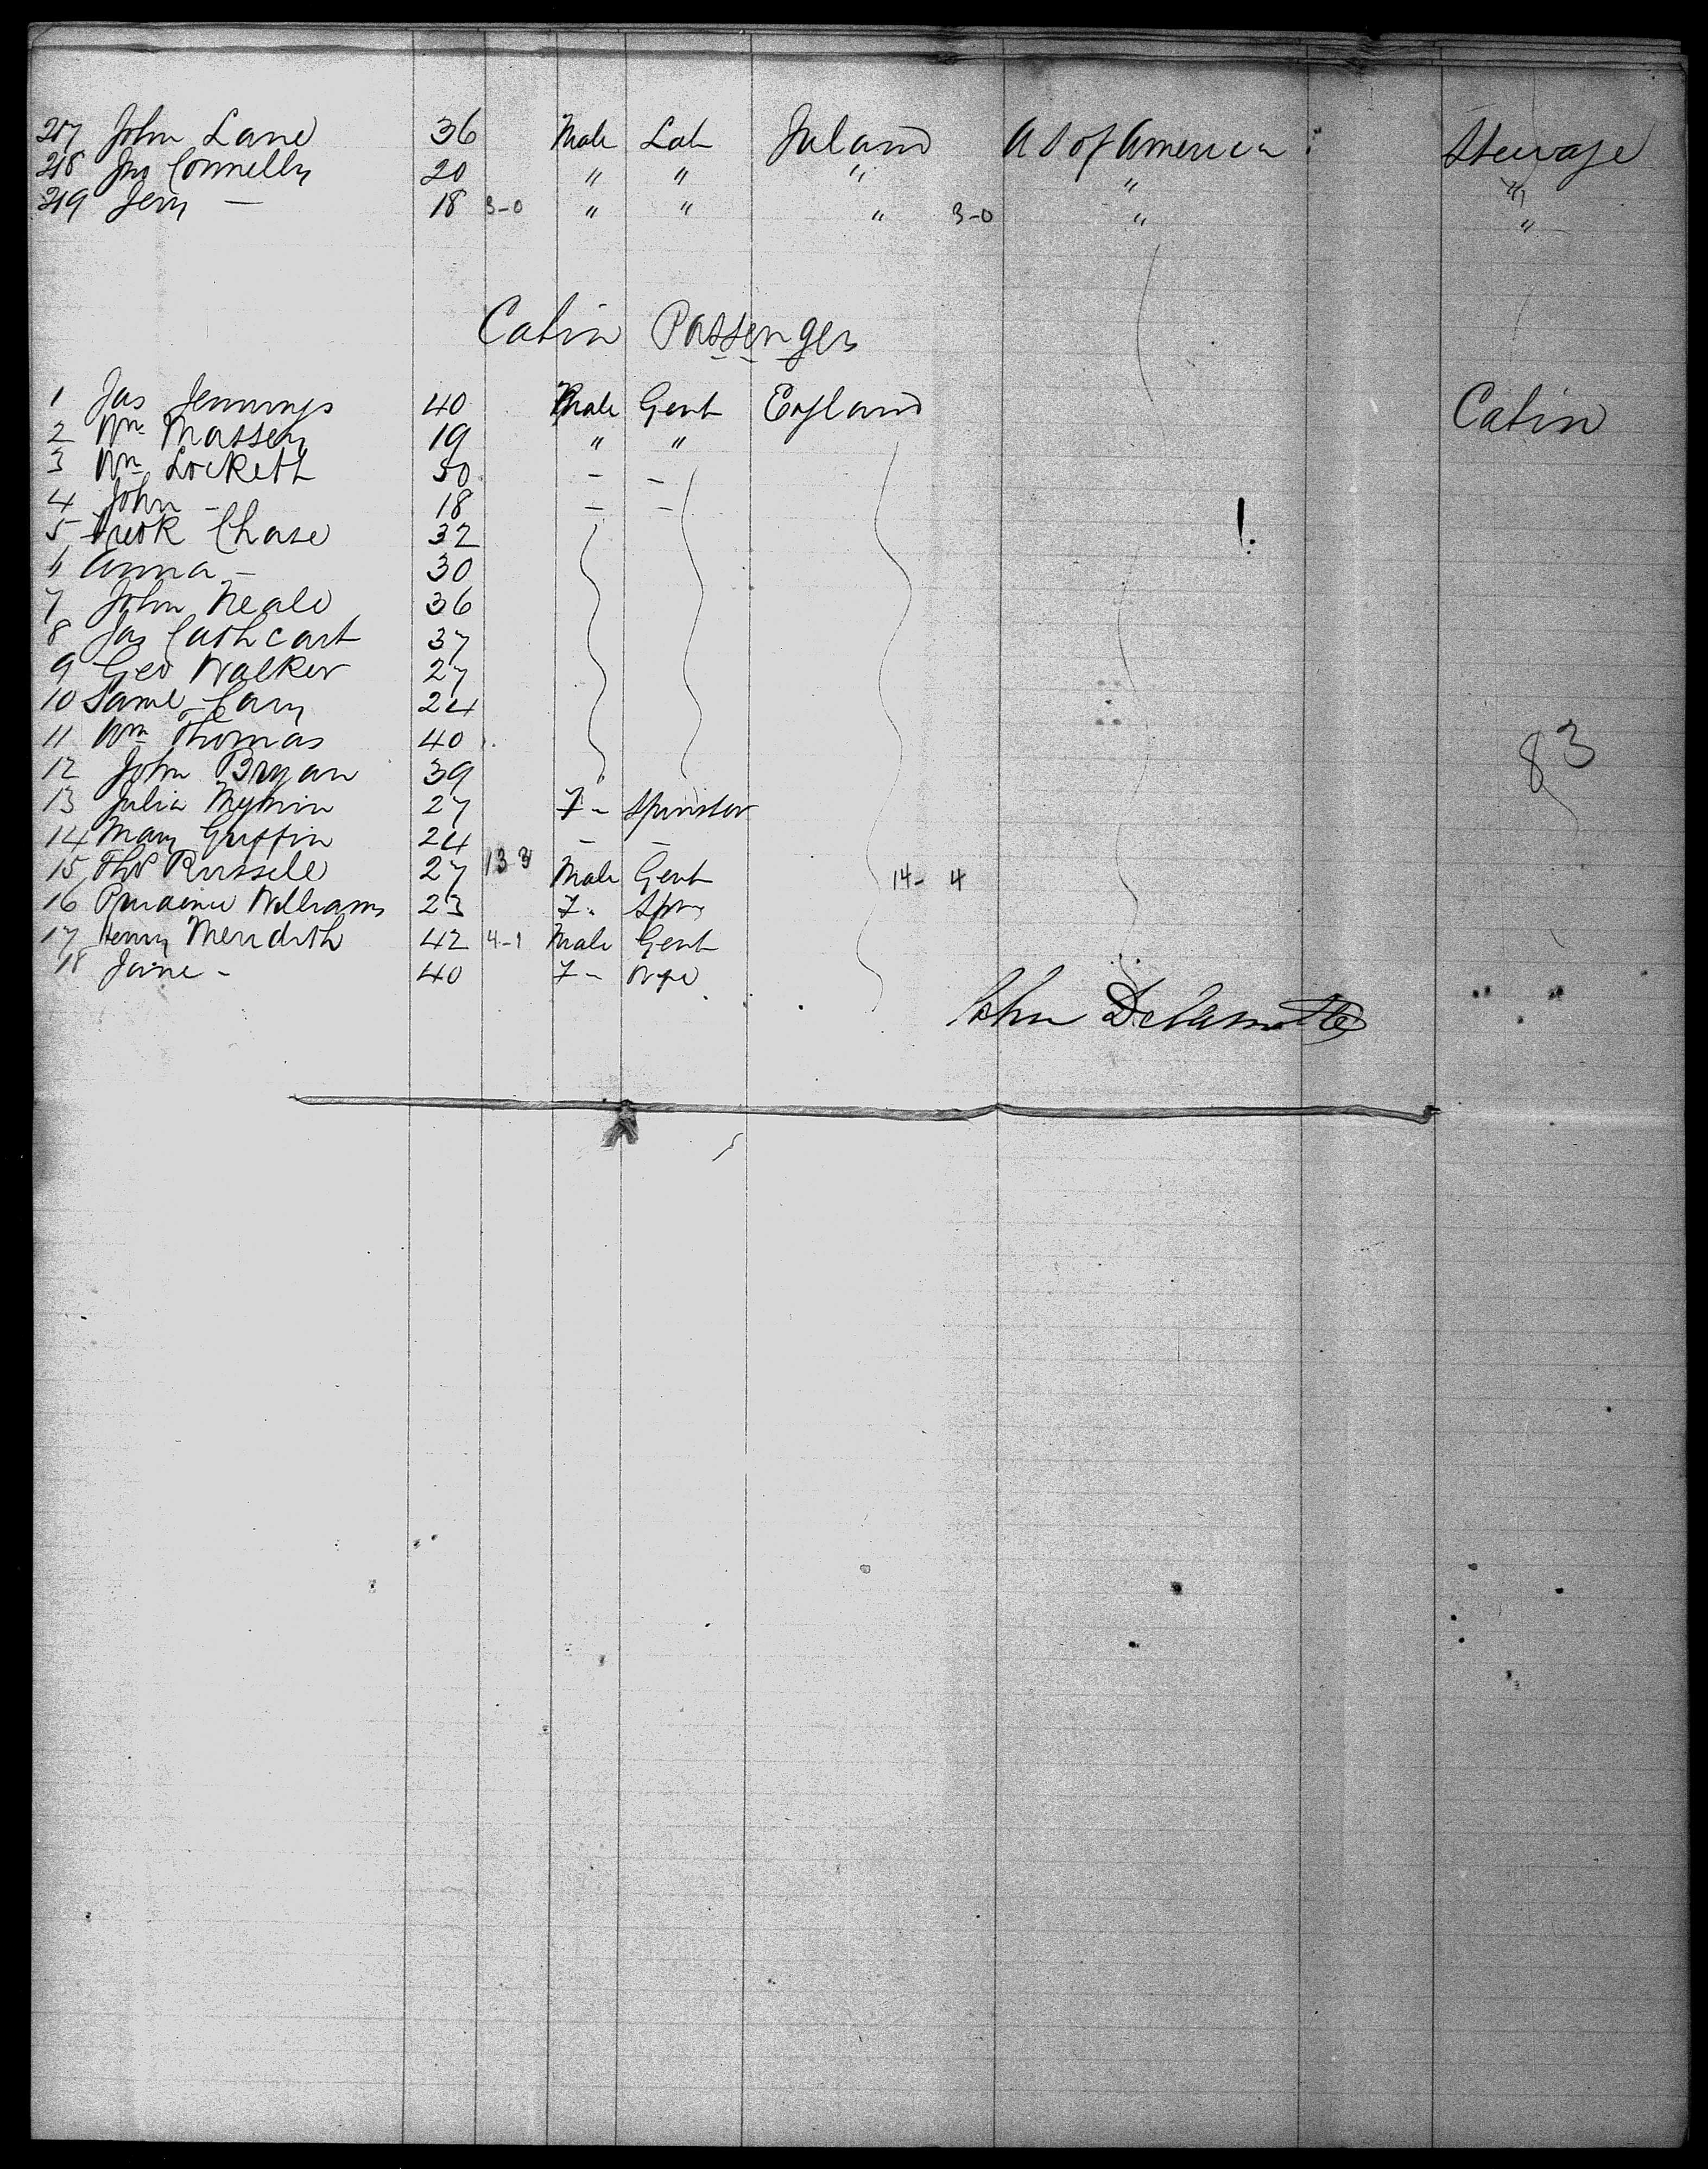 217 John Lane 36 Male Lab Ireland U S of America Steerage
218 Jno Connelly 20 " " " " "
219 Jery — 18 3-0 " " " 3-0 " "
Cabin Passengers
1 Jas Jennings 40 Male Gent England Cabin
2 Wm Massey 19 " "
3 Wm Lockett 50 - -
4 John - 18 - -
5 Fredk Chase 32
6 Anna - 30
7 John Neale 36
8 Jas Cathcart 37
9 Geo Walker 27
10 Saml Cary 24
11 Wm Thomas 40
12 John Bryan 39 "
83
13 Julia 27 F - Spinster
14 Mary Griffin 24 - -
15 Thos Russell 27 13 3 Male Gent 14- 4
16 Prudence Williams 23 F - Spin
17 Henry Meridith 42 4-1 Male Gent
18 Jane - 40 F - Wife
John Delamotte